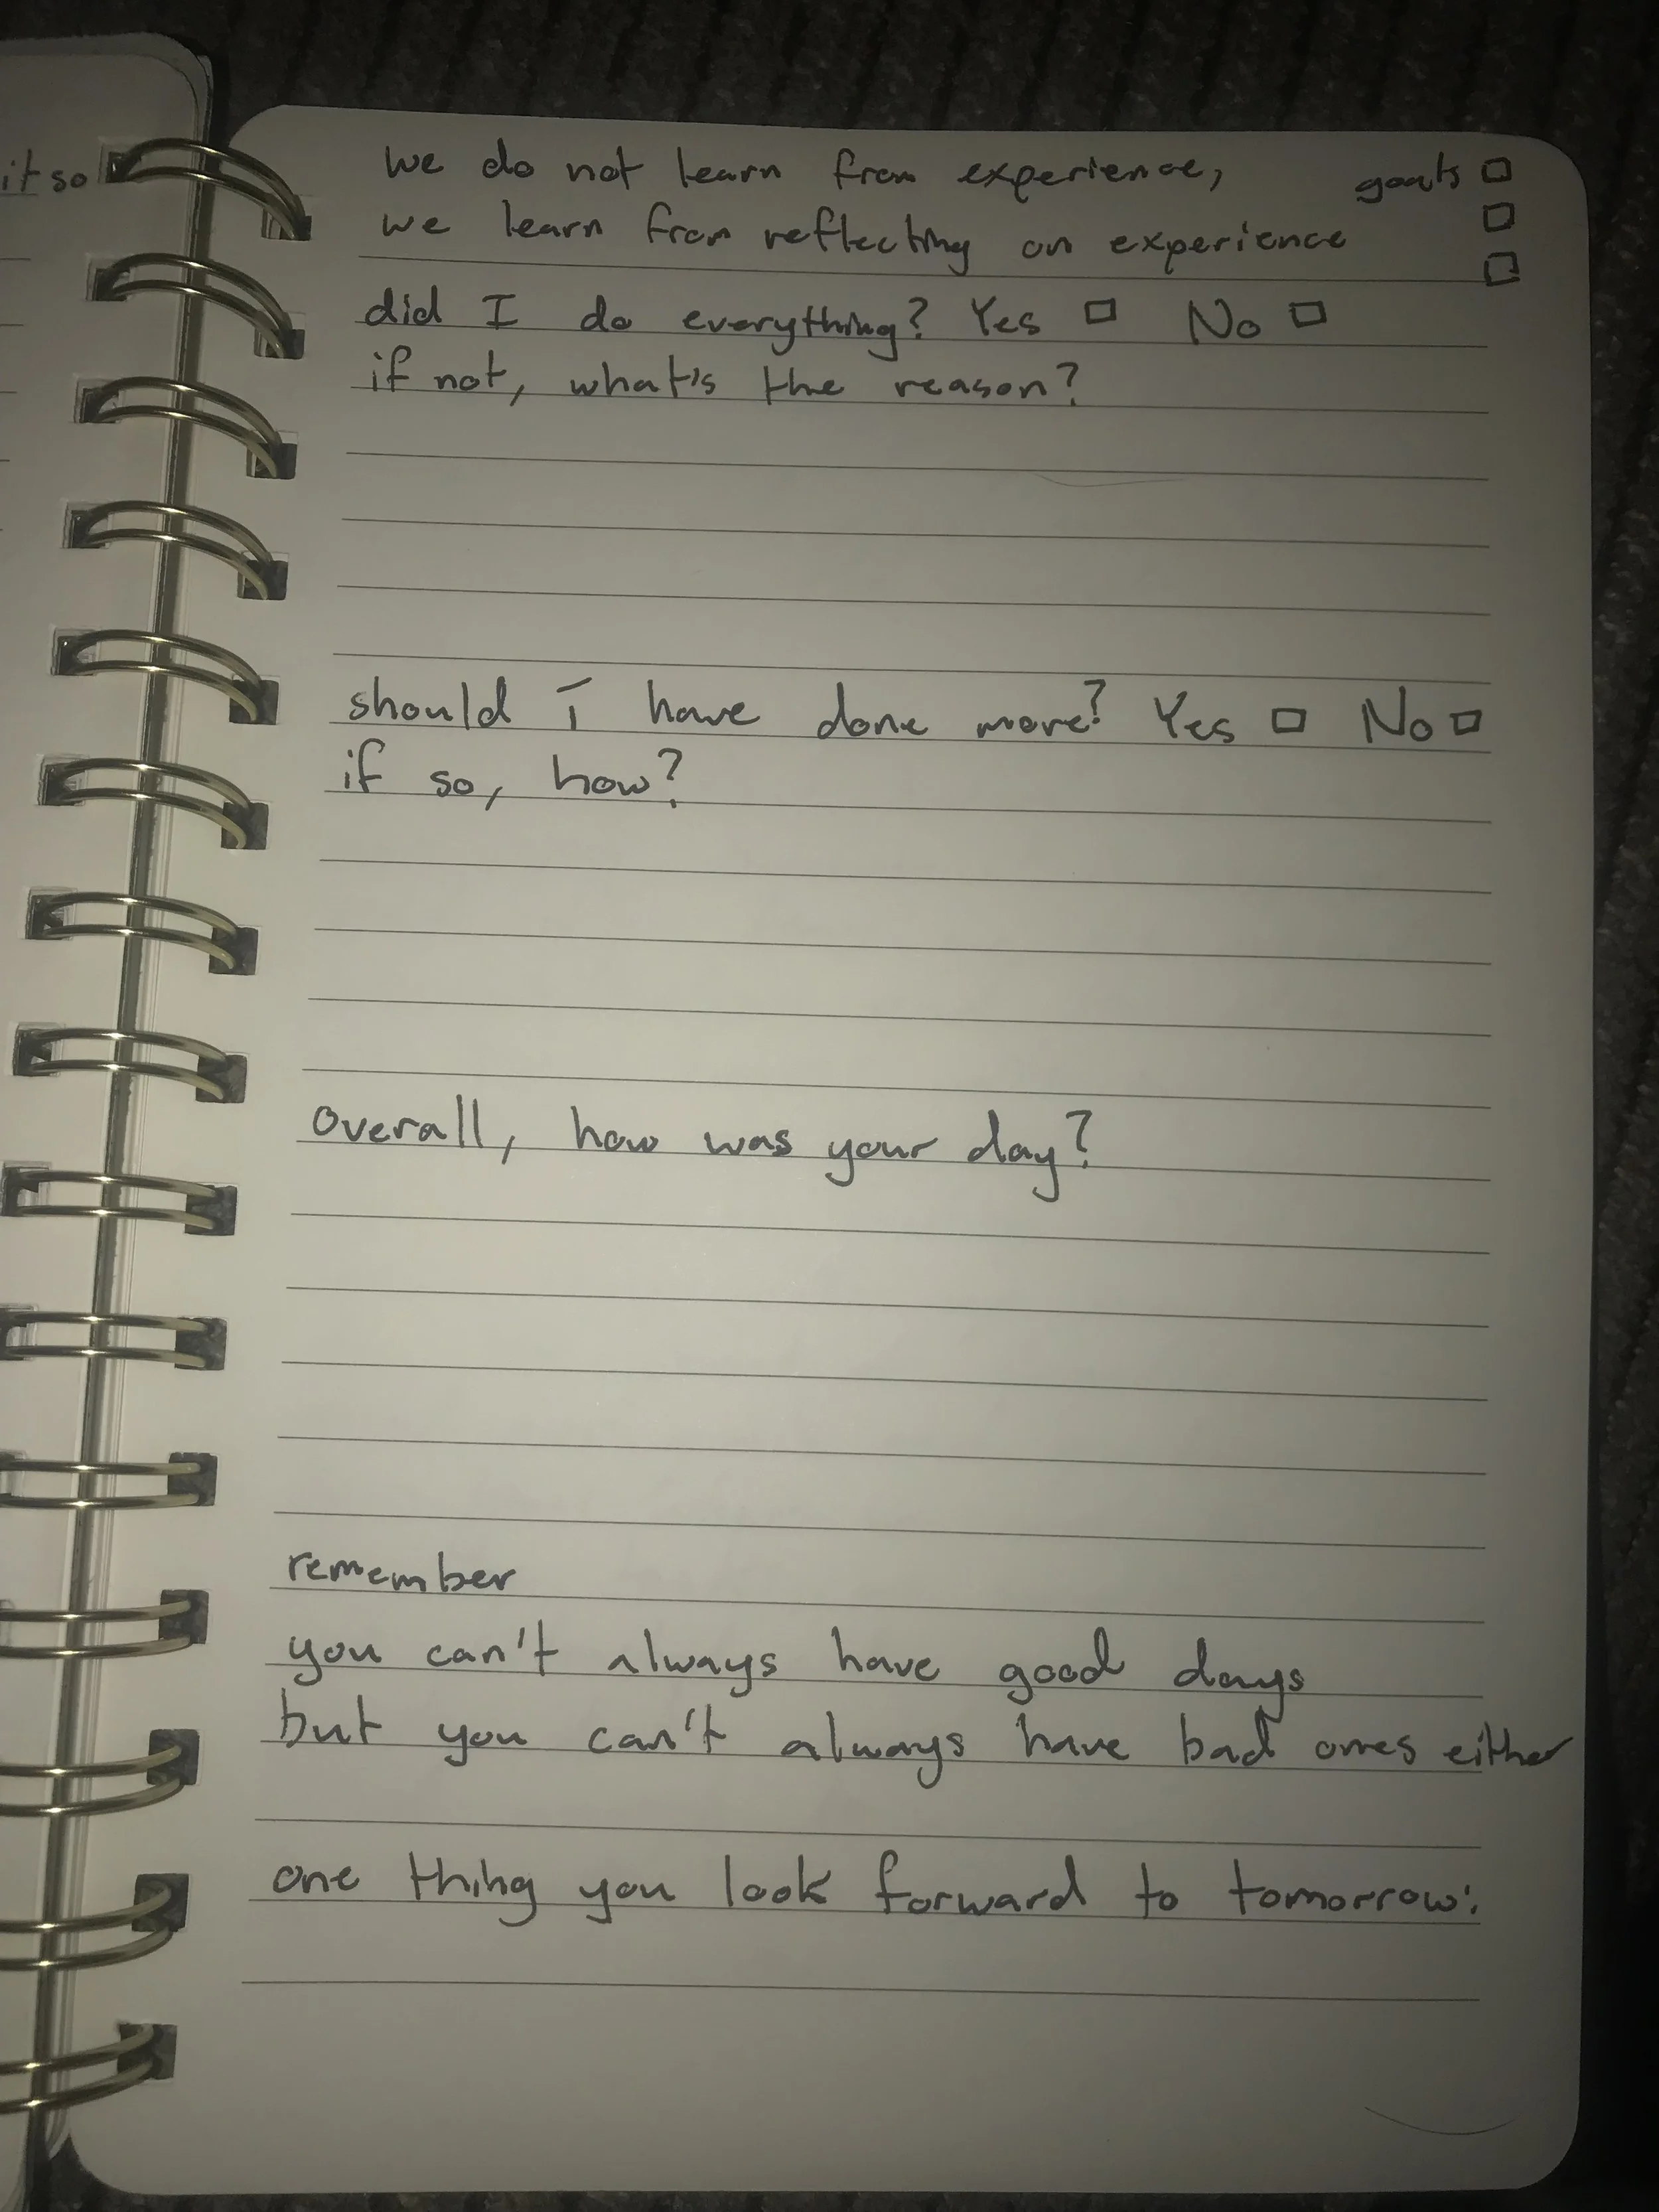 it so
we do not learn from experience,
goals □
we learn from reflecting on experience
□
□
did I do everything? Yes □ No □
if not, what's the reason?
should I have done more? Yes □ No □
if so, how?
Overall, how was your day?
remember
you can't always have good days
but you can't always have bad ones either
one thing you look forward to tomorrow: